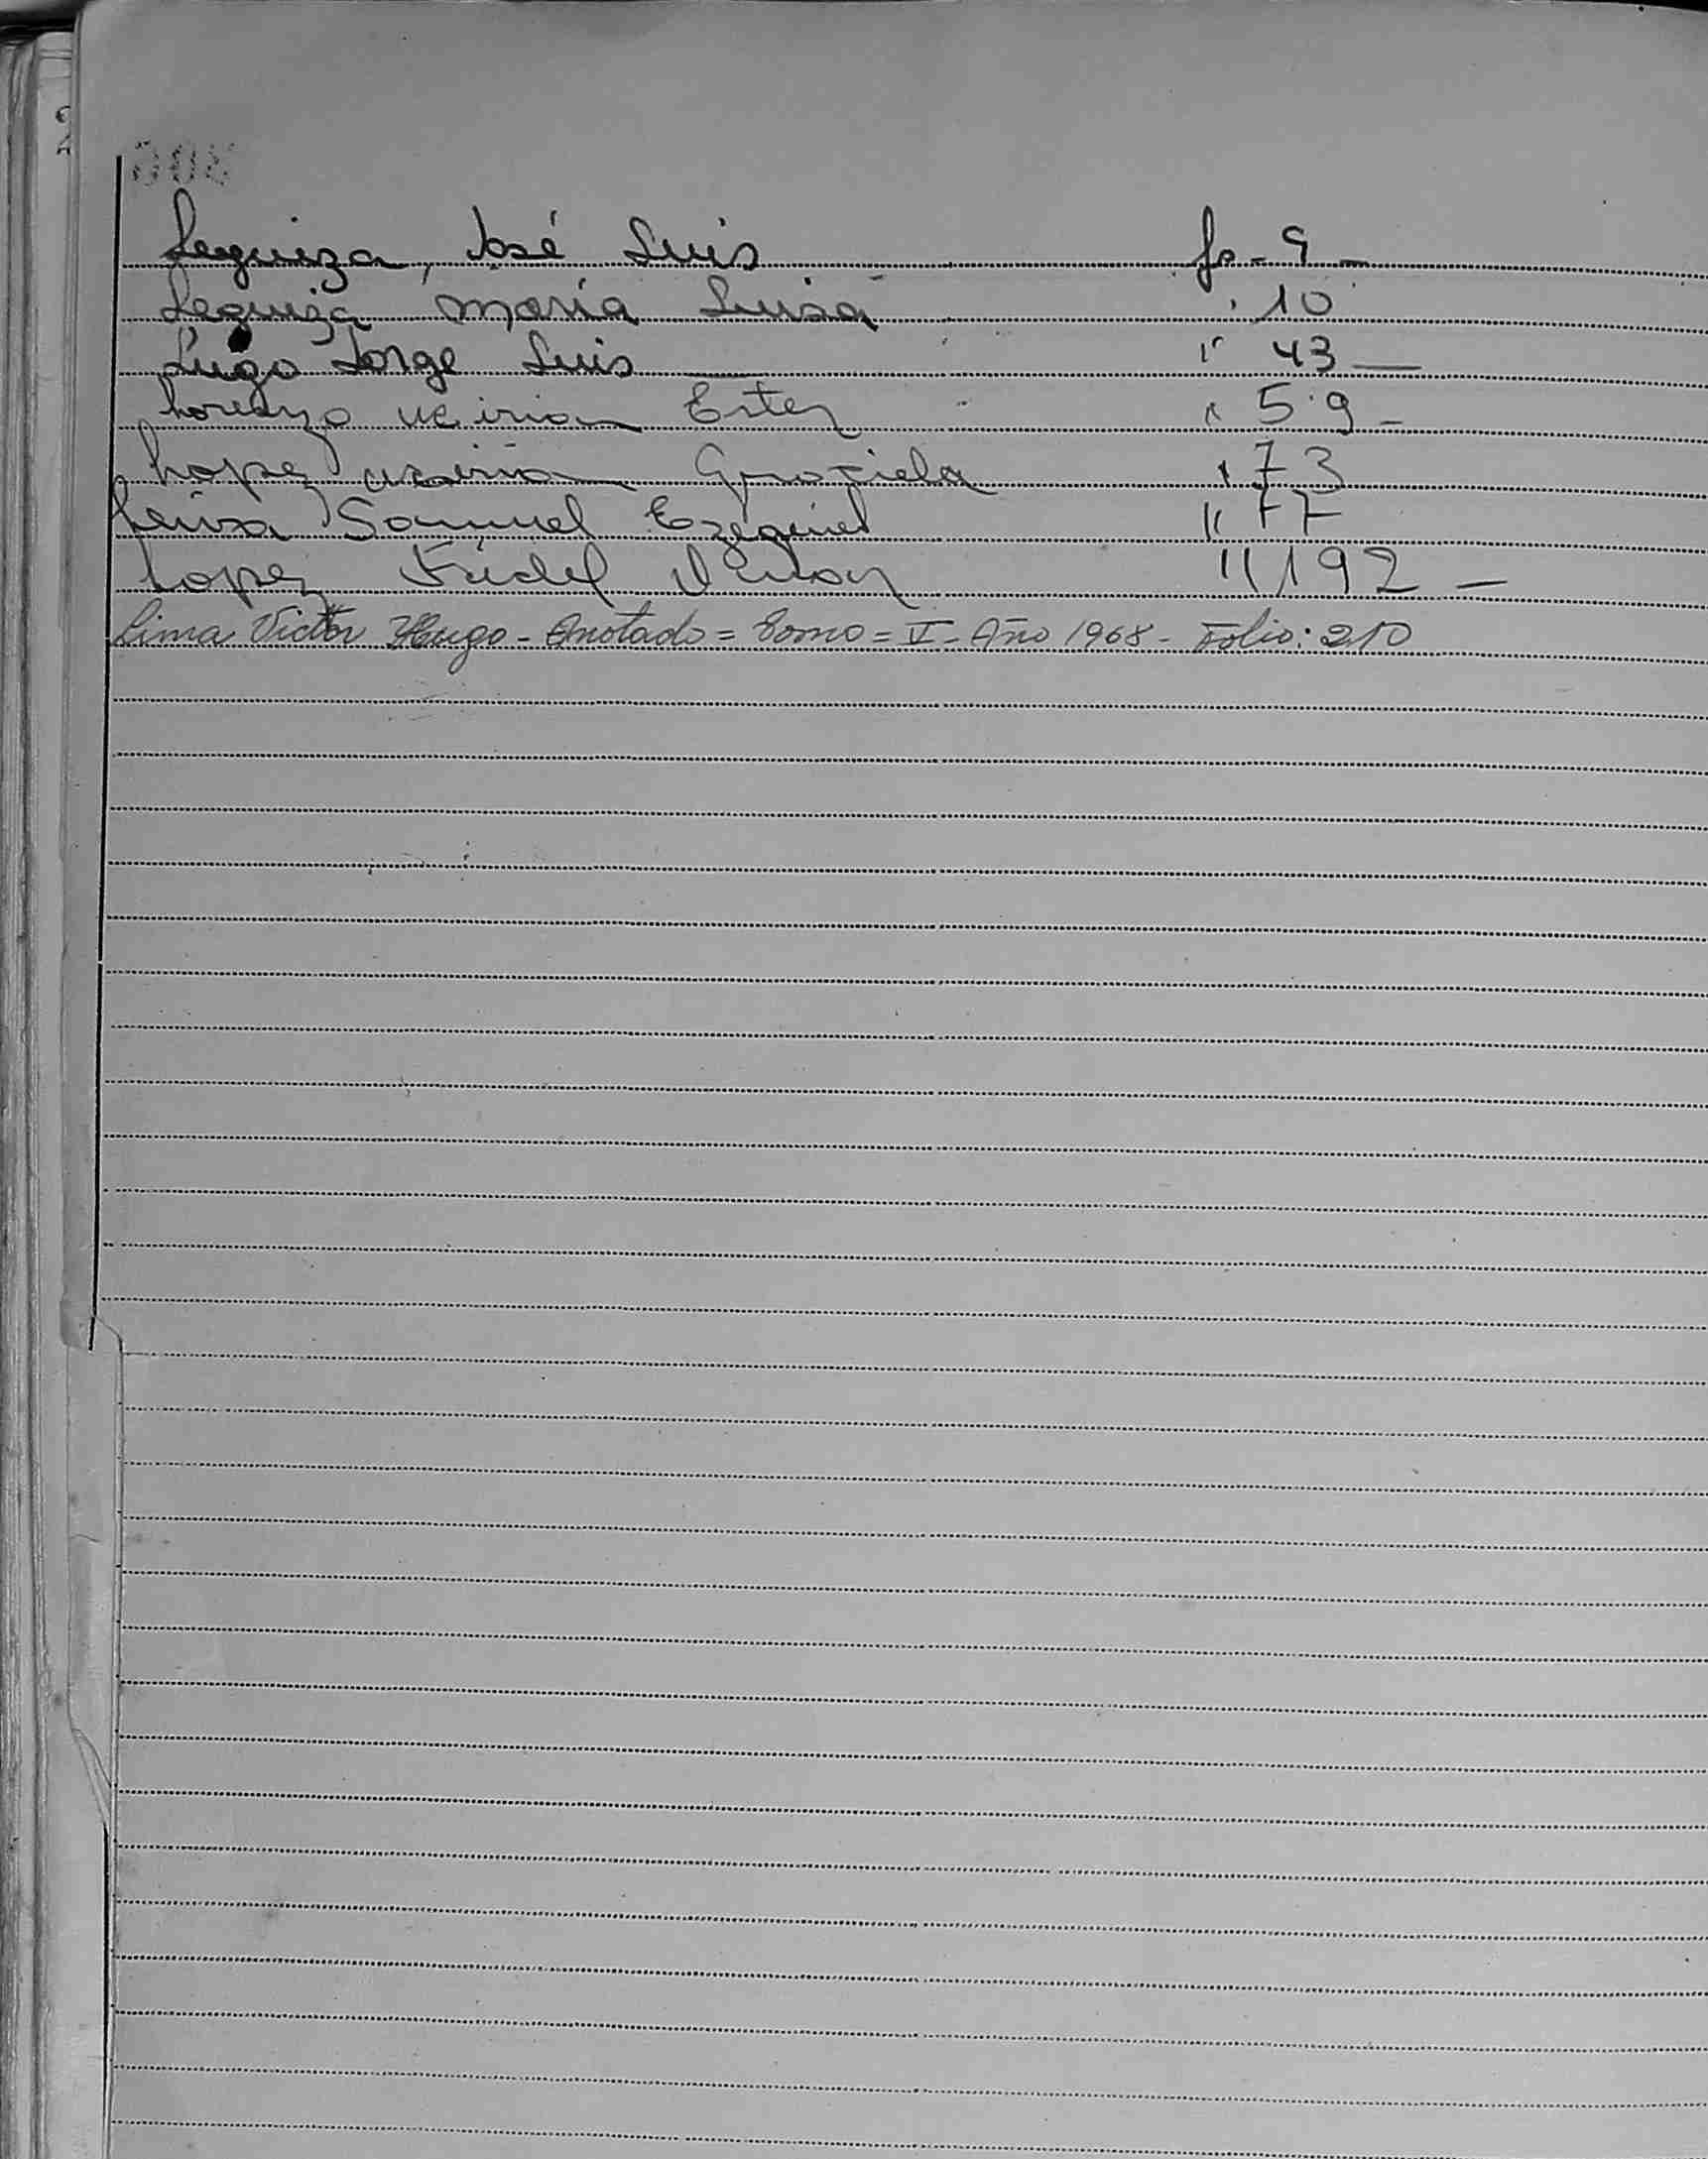 Leguiza, José Luis fs - 9 -
Leguiza María Luisa " 10
Lugo Jorge Luis " 43 —
Lorenzo Miriam Ester " 59 -
Lopez Miriam Graciela " 73
Leiva Samuel Ezequiel " 77
Lopez Fidel " 192 —
Lima Victor Hugo - Anotado = Tomo = V - Año 1968 - Folio: 210